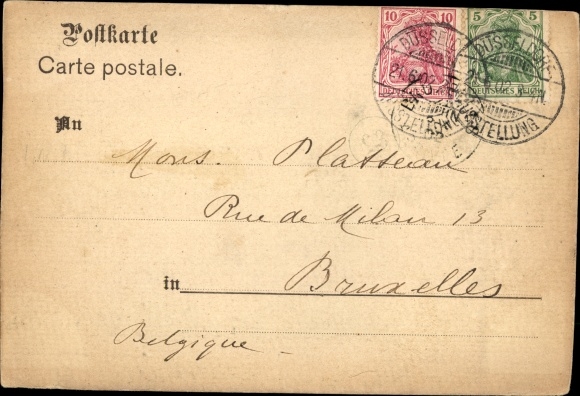 Postkarte
Carte postale.
10
DEUTSCHES REICH
5
DEUTSCHES REICH
DÜSSELDORF
AUSSTELLUNG
An
Mons. Platteau
Rue de Milan 13
in Bruxelles
Belgique